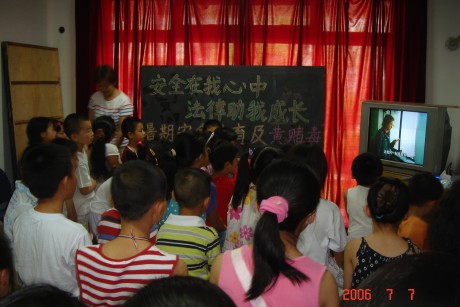 安全在我心中
法律助我成长
暑期安全教育及黄赌毒
2006 7 7